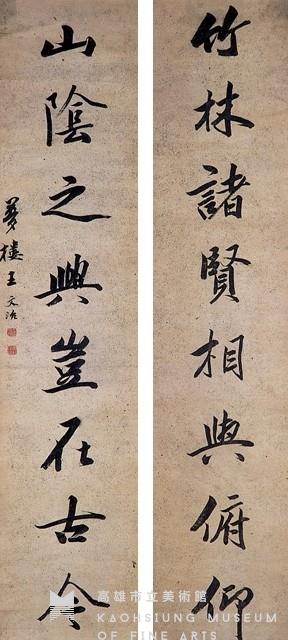 竹林諸賢相與俯仰
山陰之興豈在古今
夢樓王文治
高雄市立美術館
KAOHSIUNG MUSEUM
OF FINE ARTS